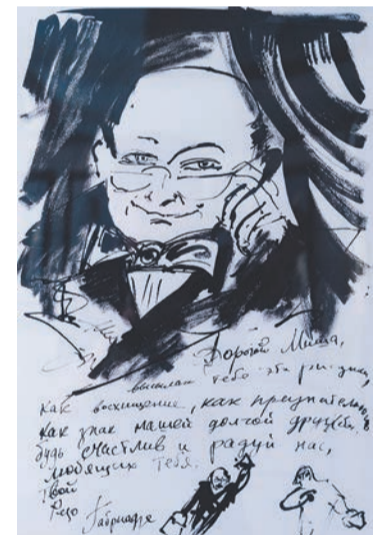 Дорогой Миша,
высылаю тебе эти рисунки,
как восхищение, как признательность
как знак нашей долгой дружбы.
будь счастлив и радуй нас,
любящих тебя.
твой
Резо Габриадзе